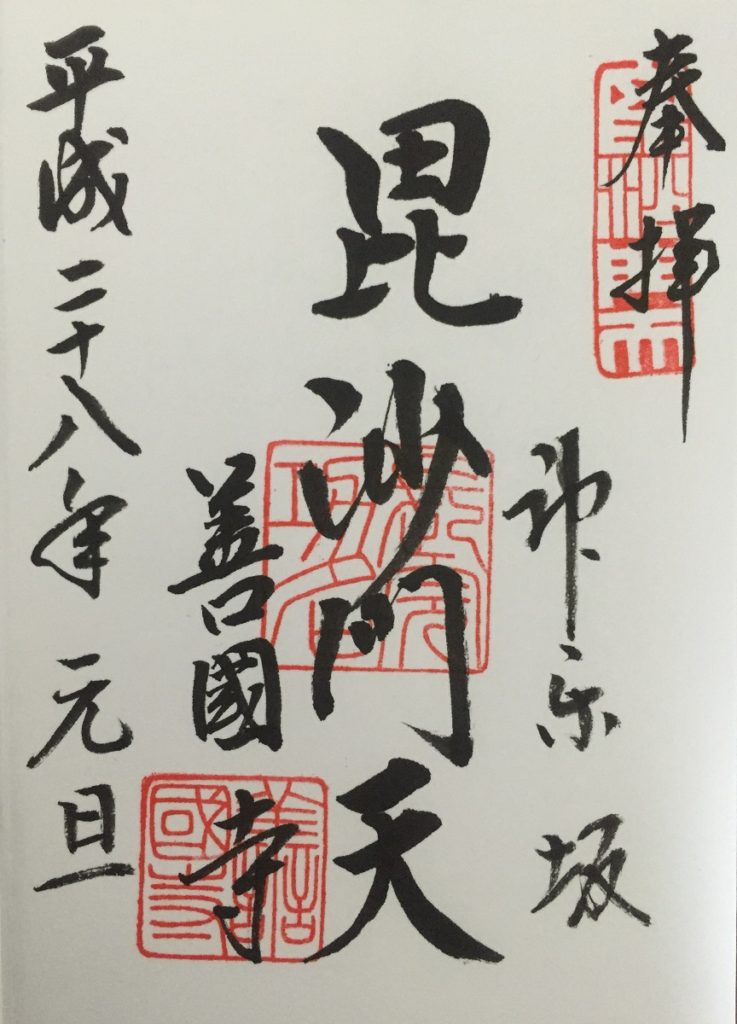 奉拝
神楽坂
毘沙門天
善國寺
平成二十八年 元旦